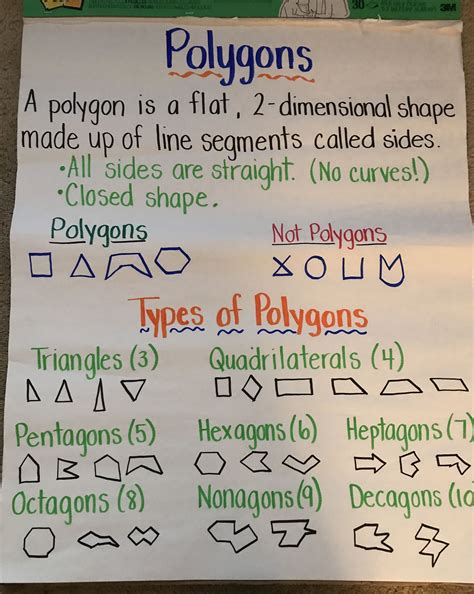 30
3M
Polygons
A polygon is a flat, 2-dimensional shape
made up of line segments called sides.
•All sides are straight. (No curves!)
•Closed shape.
Polygons Not Polygons
Types of Polygons
Triangles (3) Quadrilaterals (4)
Pentagons (5) Hexagons (6) Heptagons (7)
Octagons (8) Nonagons (9) Decagons (10